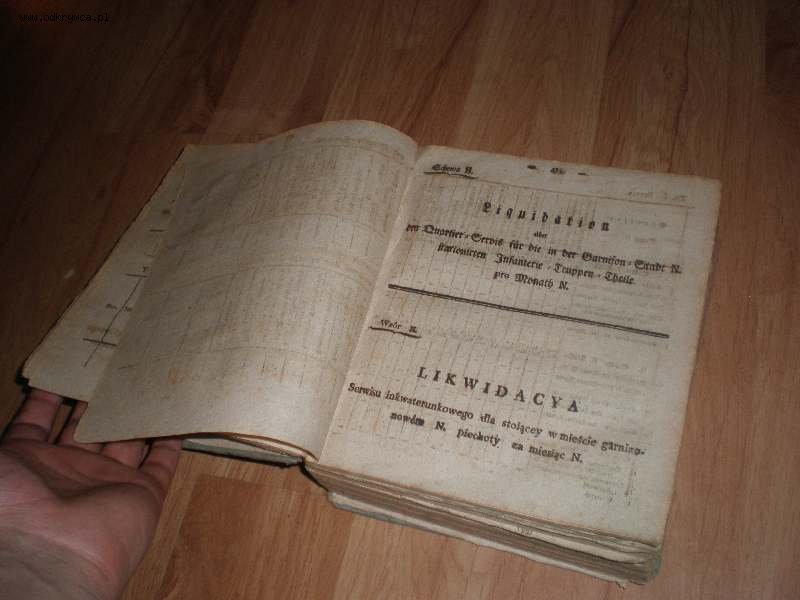 www.odkrywca.pl
Schema N.
Liquidation
über
den Quartier-Servis für die in der Garnison-Stadt N.
stationirten Infanterie-Truppen-Theile
pro Monath N.
Wzór N.
LIKWIDACYA
Serwisu inkwaterunkowego dla stoiącey w mieście garnizo-
nowém N. piechoty za miesiąc N.